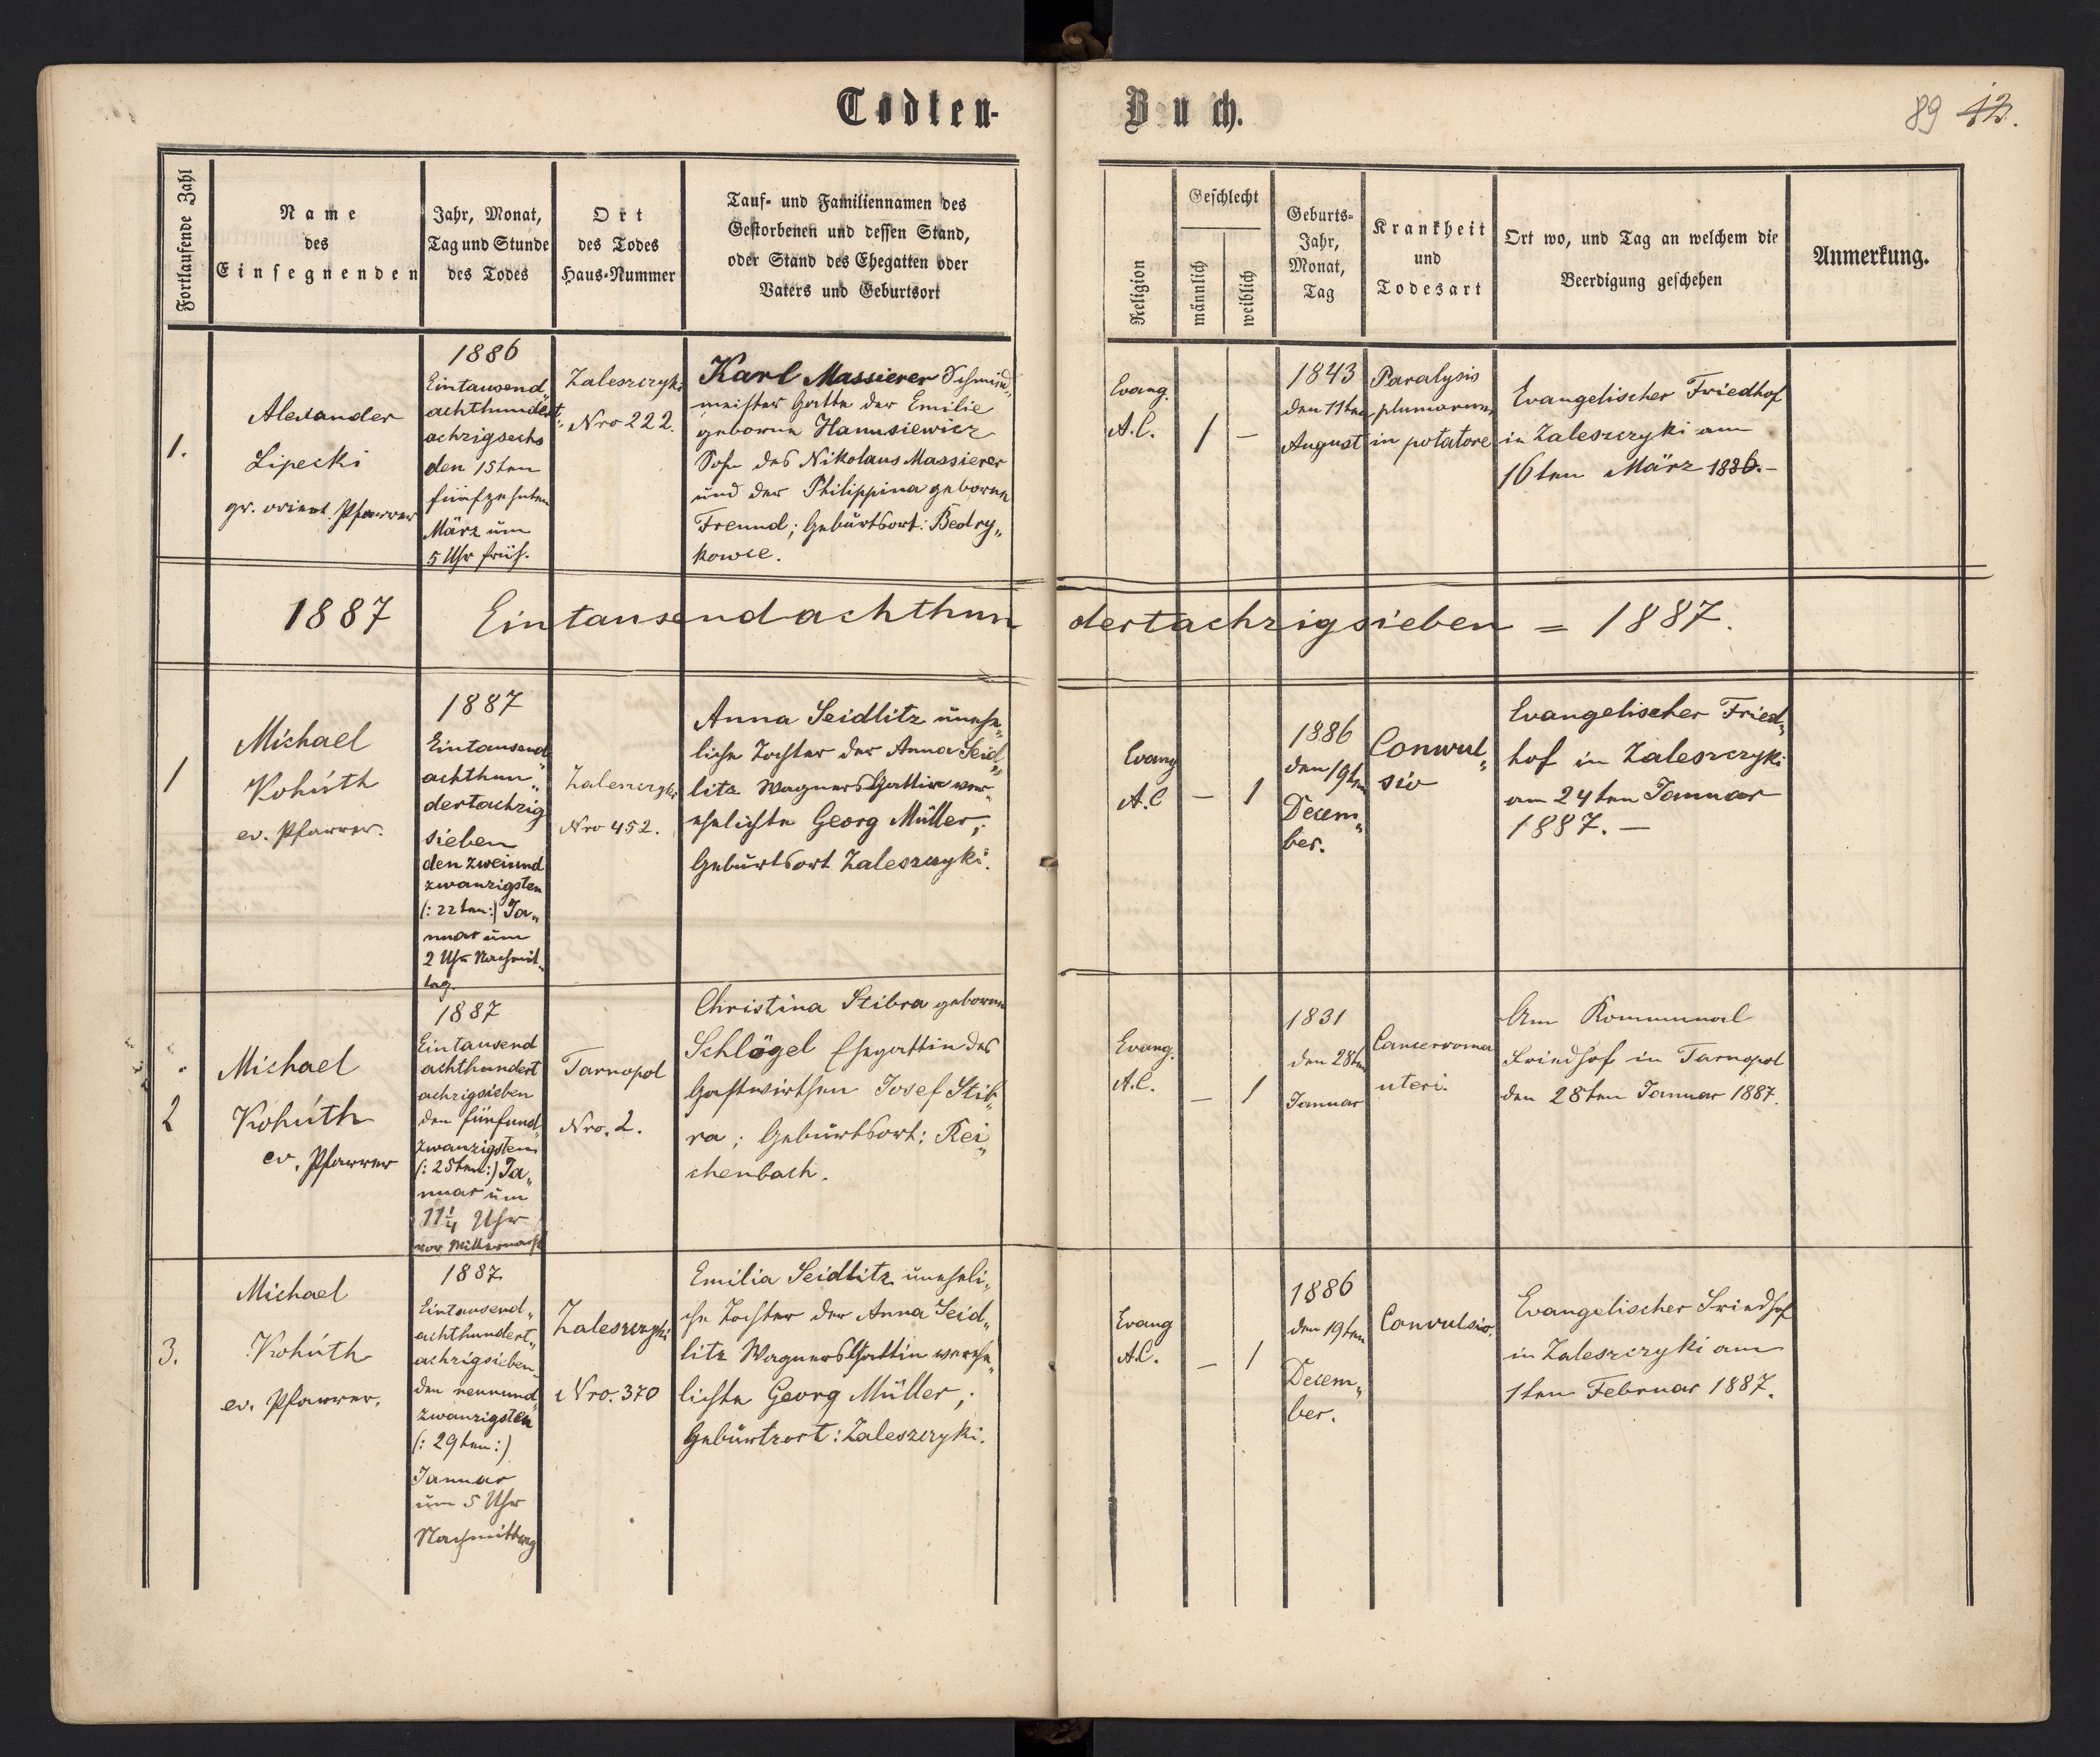 Todten-
Buch.
89 12.
Fortlaufende Zahl
Name
des
Einsegnenden
Jahr, Monat,
Tag und Stunde
des Todes
Ort
des Todes
Haus-Nummer
Tauf- und Familiennamen des
Gestorbenen und dessen Stand,
oder Stand des Ehegatten oder
Vaters und Geburtsort
Religion
Geschlecht
männlich
weiblich
Geburts-
Jahr,
Monat,
Tag
Krankheit
und
Todesart
Ort wo, und Tag an welchem die
Beerdigung geschehen
Anmerkung.
1.
Alexander
Lipecki
gr. orient. Pfarrer
1886
Eintausend„
achthundert
achzigsechs
den 15ten
fünfzehnten
März um
5 Uhr früh.
Zaleszczyki
Nro 222.
Karl Massierer Schmied„
meister Gatte der Emilie
geborne Hanusiewicz
Sohn des Nikolaus Massierer
und der Philippina geborne
Freund; Geburtsort: Bedry„
kowce.
Evang.
A.C.
1
–
1843
den 11ten
August
Paralysis
plumorum
in potatore
Evangelischer Friedhof
in Zaleszczyki am
16ten März 1886.–
1887 Eintausendachthundertachzigsieben = 1887.
1
Michael
Kohúth
ev. Pfarrer.
1887
Eintausend„
achthun„
dertachzig
sieben
den zweiund
zwanzigsten
(: 22ten :) Ja„
nuar um
2 Uhr Nachmit„
tag
Zaleszczyki
Nro 452.
Anna Seidlitz unehe„
liche Tochter der Anna Seid„
litz Wagners Gattin ver„
ehelichte Georg Müller;
Geburtsort Zaleszczyki.
Evang
A.C
–
1
1886
den 19ten
Decem„
ber.
Conwul„
sio
Evangelischer Fried„
hof in Zaleszczyki
am 24ten Januar
1887.–
2
Michael
Kohúth
ev. Pfarrer
1887
Eintausend
achthundert
achzigsieben
den fünfund„
zwanzigsten
(: 25ten :) Ja„
nuar um
11¼ Uhr
vor Mitternacht
Tarnopol
Nro. 2.
Christina Stibra geborne
Schlögel Ehegattin des
Gastwirthen Josef Stib„
ra; Geburtsort: Rei„
chenbach.
Evang.
A.C.
–
1
1831
den 28ten
Januar
Cancerroma
uteri.
Am Kommunal
Friedhof in Tarnopol
den 28ten Januar 1887.
3.
Michael
Kohúth
ev. Pfarrer.
1887
Eintausend„
achthundert„
achzigsieben
den neunund„
zwanzigsten
(: 29ten :)
Januar
um 5 Uhr
Nachmittag
Zaleszczyki
Nro. 370
Emilia Seidlitz uneheli„
che Tochter der Anna Seid„
litz Wagners Gattin verehe„
lichte Georg Müller;
Geburtsort: Zaleszczyki.
Evang
A.C.
–
1
1886
den 19ten
Decem„
ber.
Convulsio.
Evangelischer Friedhof
in Zaleszczyki am
1ten Februar 1887.